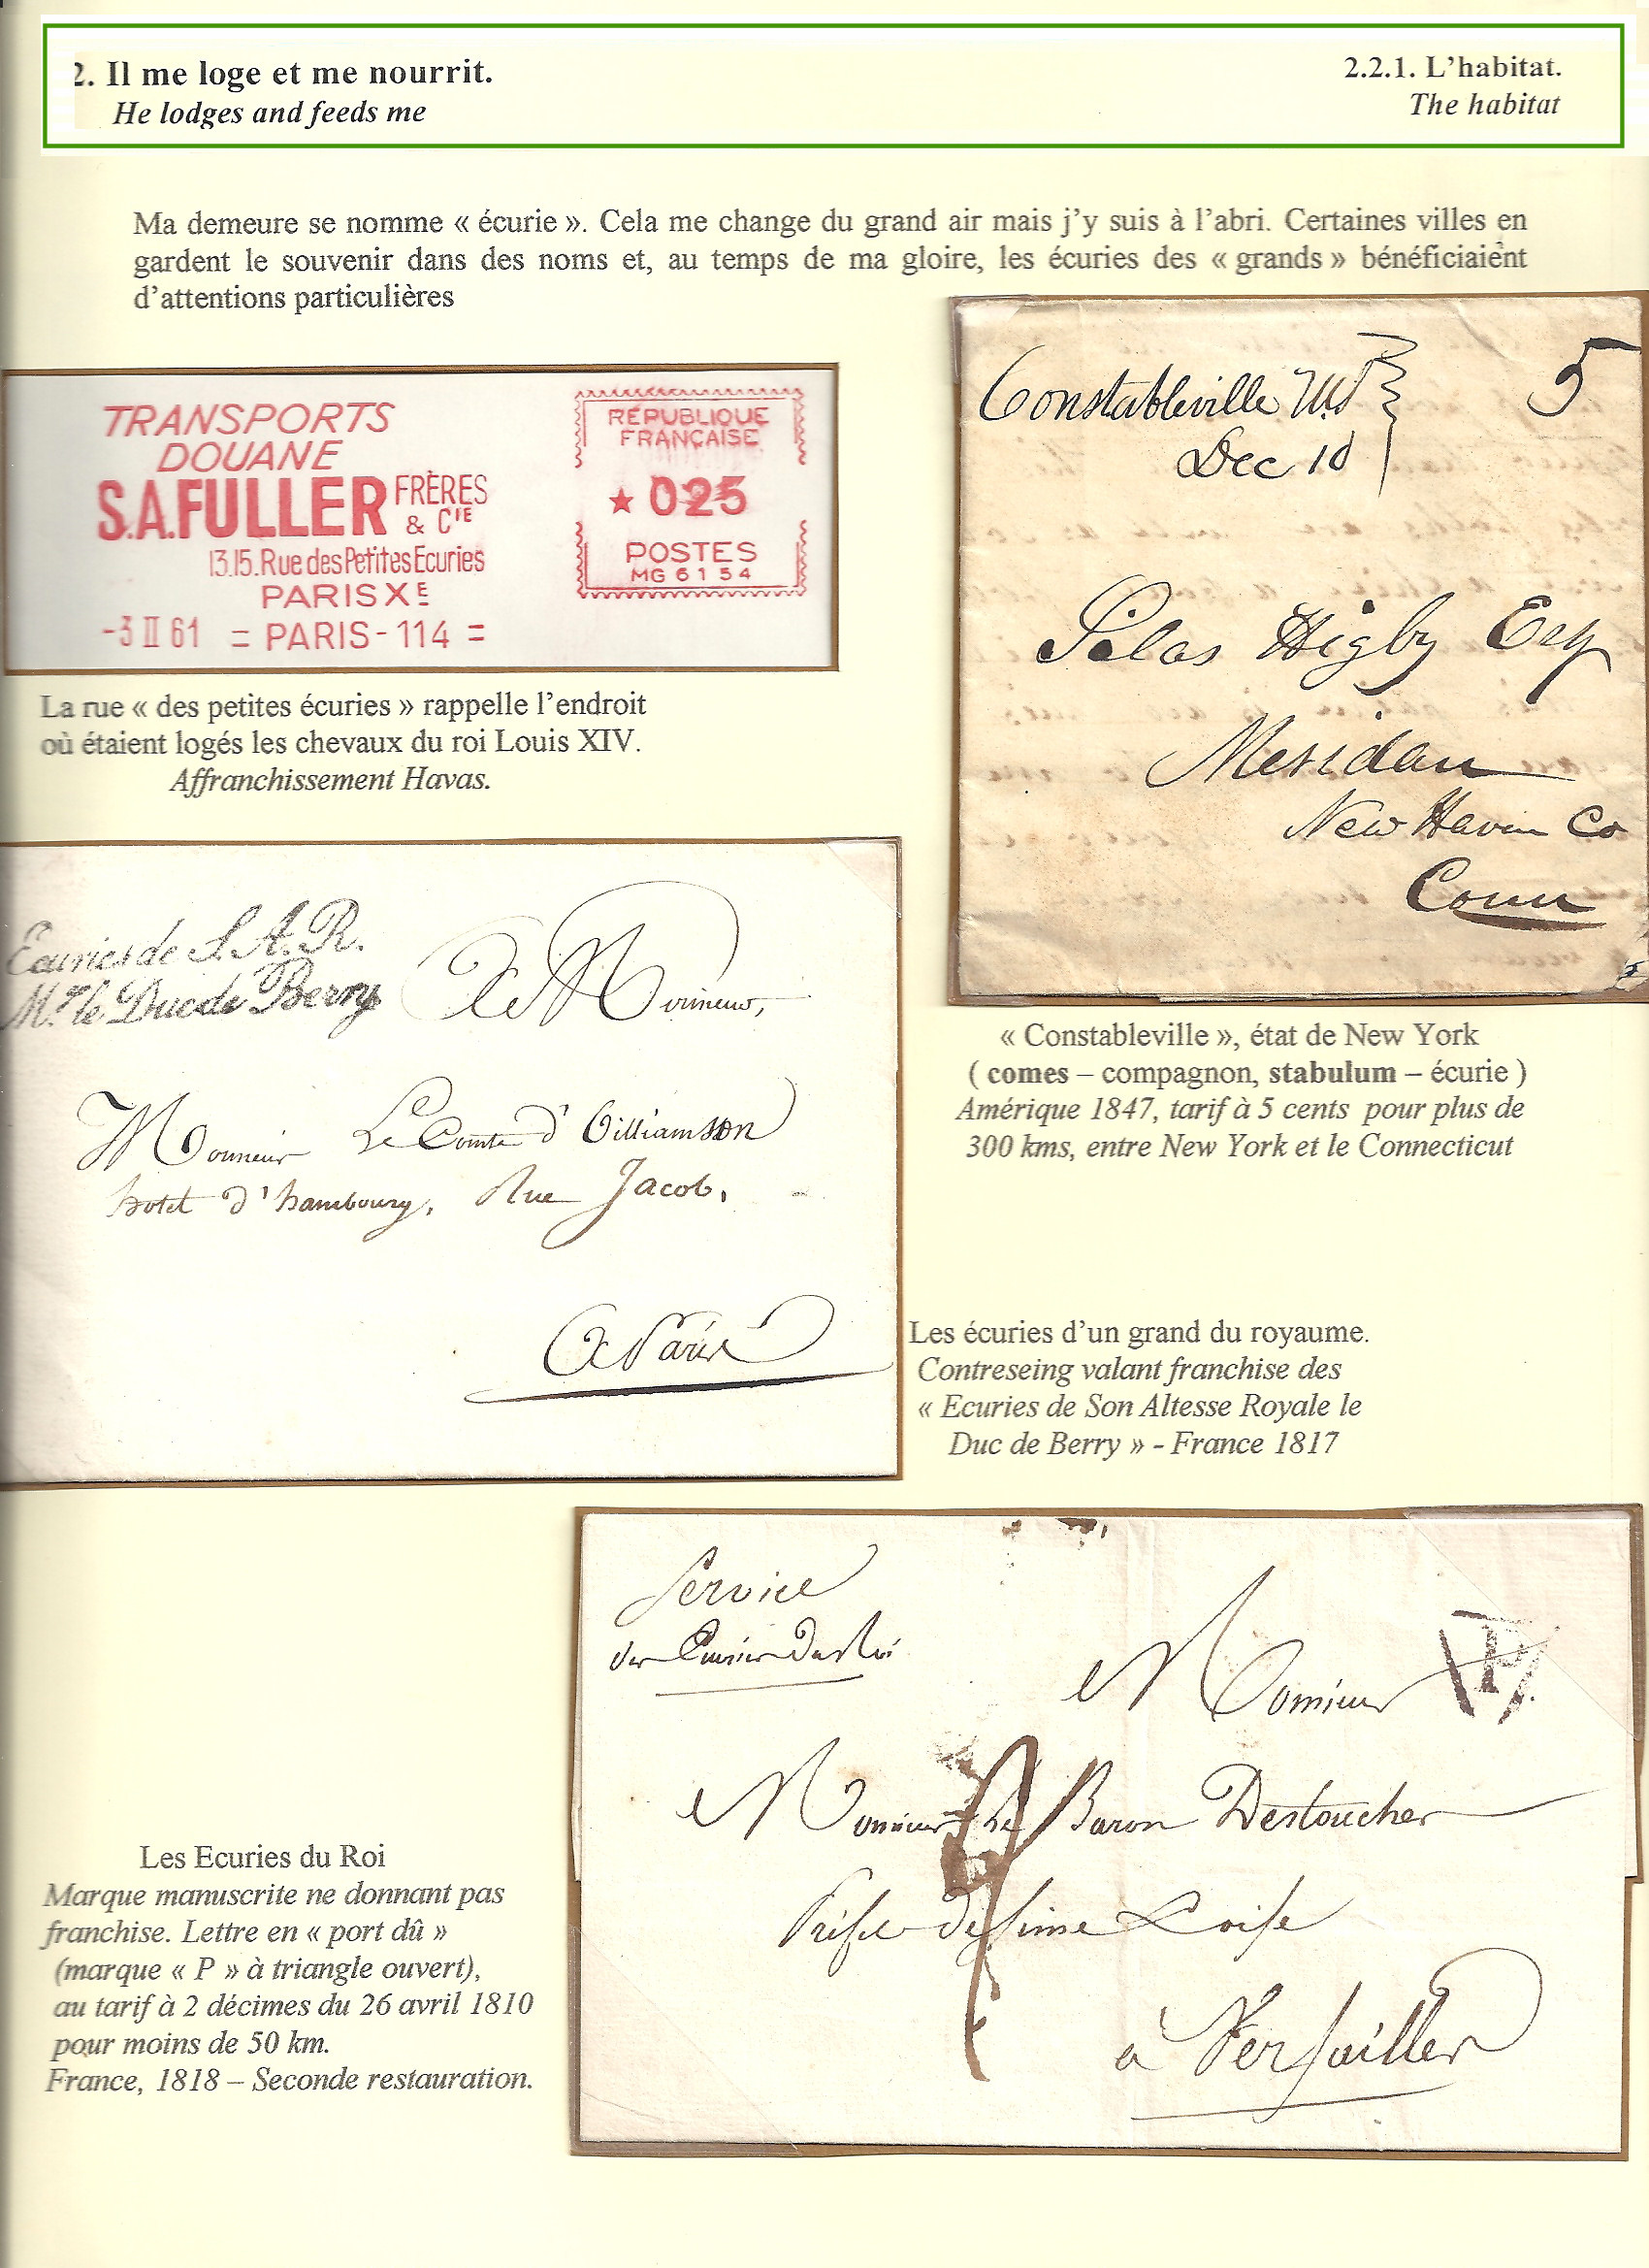 2. Il me loge et me nourrit.
He lodges and feeds me
2.2.1. L'habitat.
The habitat
Ma demeure se nomme « écurie ». Cela me change du grand air mais j'y suis à l'abri. Certaines villes en
gardent le souvenir dans des noms et, au temps de ma gloire, les écuries des « grands » bénéficiaient
d'attentions particulières
TRANSPORTS
DOUANE
S.A.FULLER FRÈRES
& CIE
13.15.Rue des Petites Ecuries
PARIS XE
-3 II 61 = PARIS-114 =
RÉPUBLIQUE
FRANÇAISE
★ 025
POSTES
MG 6154
La rue « des petites écuries » rappelle l'endroit
où étaient logés les chevaux du roi Louis XIV.
Affranchissement Havas.
Constableville 5
Dec 10
Silas Higby Esq
Meridan
New Haven Co
Conn
« Constableville », état de New York
( comes – compagnon, stabulum – écurie )
Amérique 1847, tarif à 5 cents pour plus de
300 kms, entre New York et le Connecticut
Ecuries de S.A.R.
Mgr le Duc de Berry
A Monsieur,
Monsieur Le Comte d'Williamson
hotel d'hambourg, Rue Jacob,
A Paris
Les écuries d'un grand du royaume.
Contreseing valant franchise des
« Ecuries de Son Altesse Royale le
Duc de Berry » - France 1817
Service
des Ecuries du Roi
Monsieur
P
Monsieur Le Baron Destouches
Préfet de Seine & Oise
à Versailles
Les Ecuries du Roi
Marque manuscrite ne donnant pas
franchise. Lettre en « port dû »
(marque « P » à triangle ouvert),
au tarif à 2 décimes du 26 avril 1810
pour moins de 50 km.
France, 1818 – Seconde restauration.